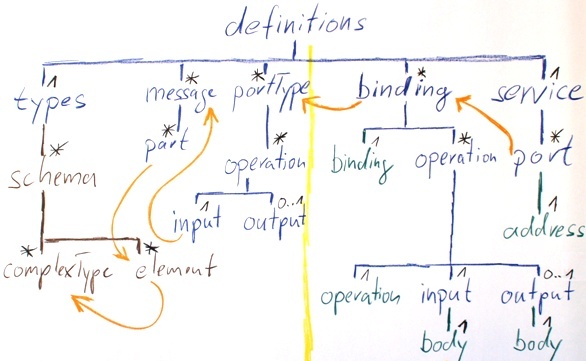 definitions
1 * * * 1
types message portType binding service
* * * 1 * *
part
schema operation binding operation port
1 0..1 1
input output address
* *
complexType element
1 1 0..1
operation input output
1 1
body body